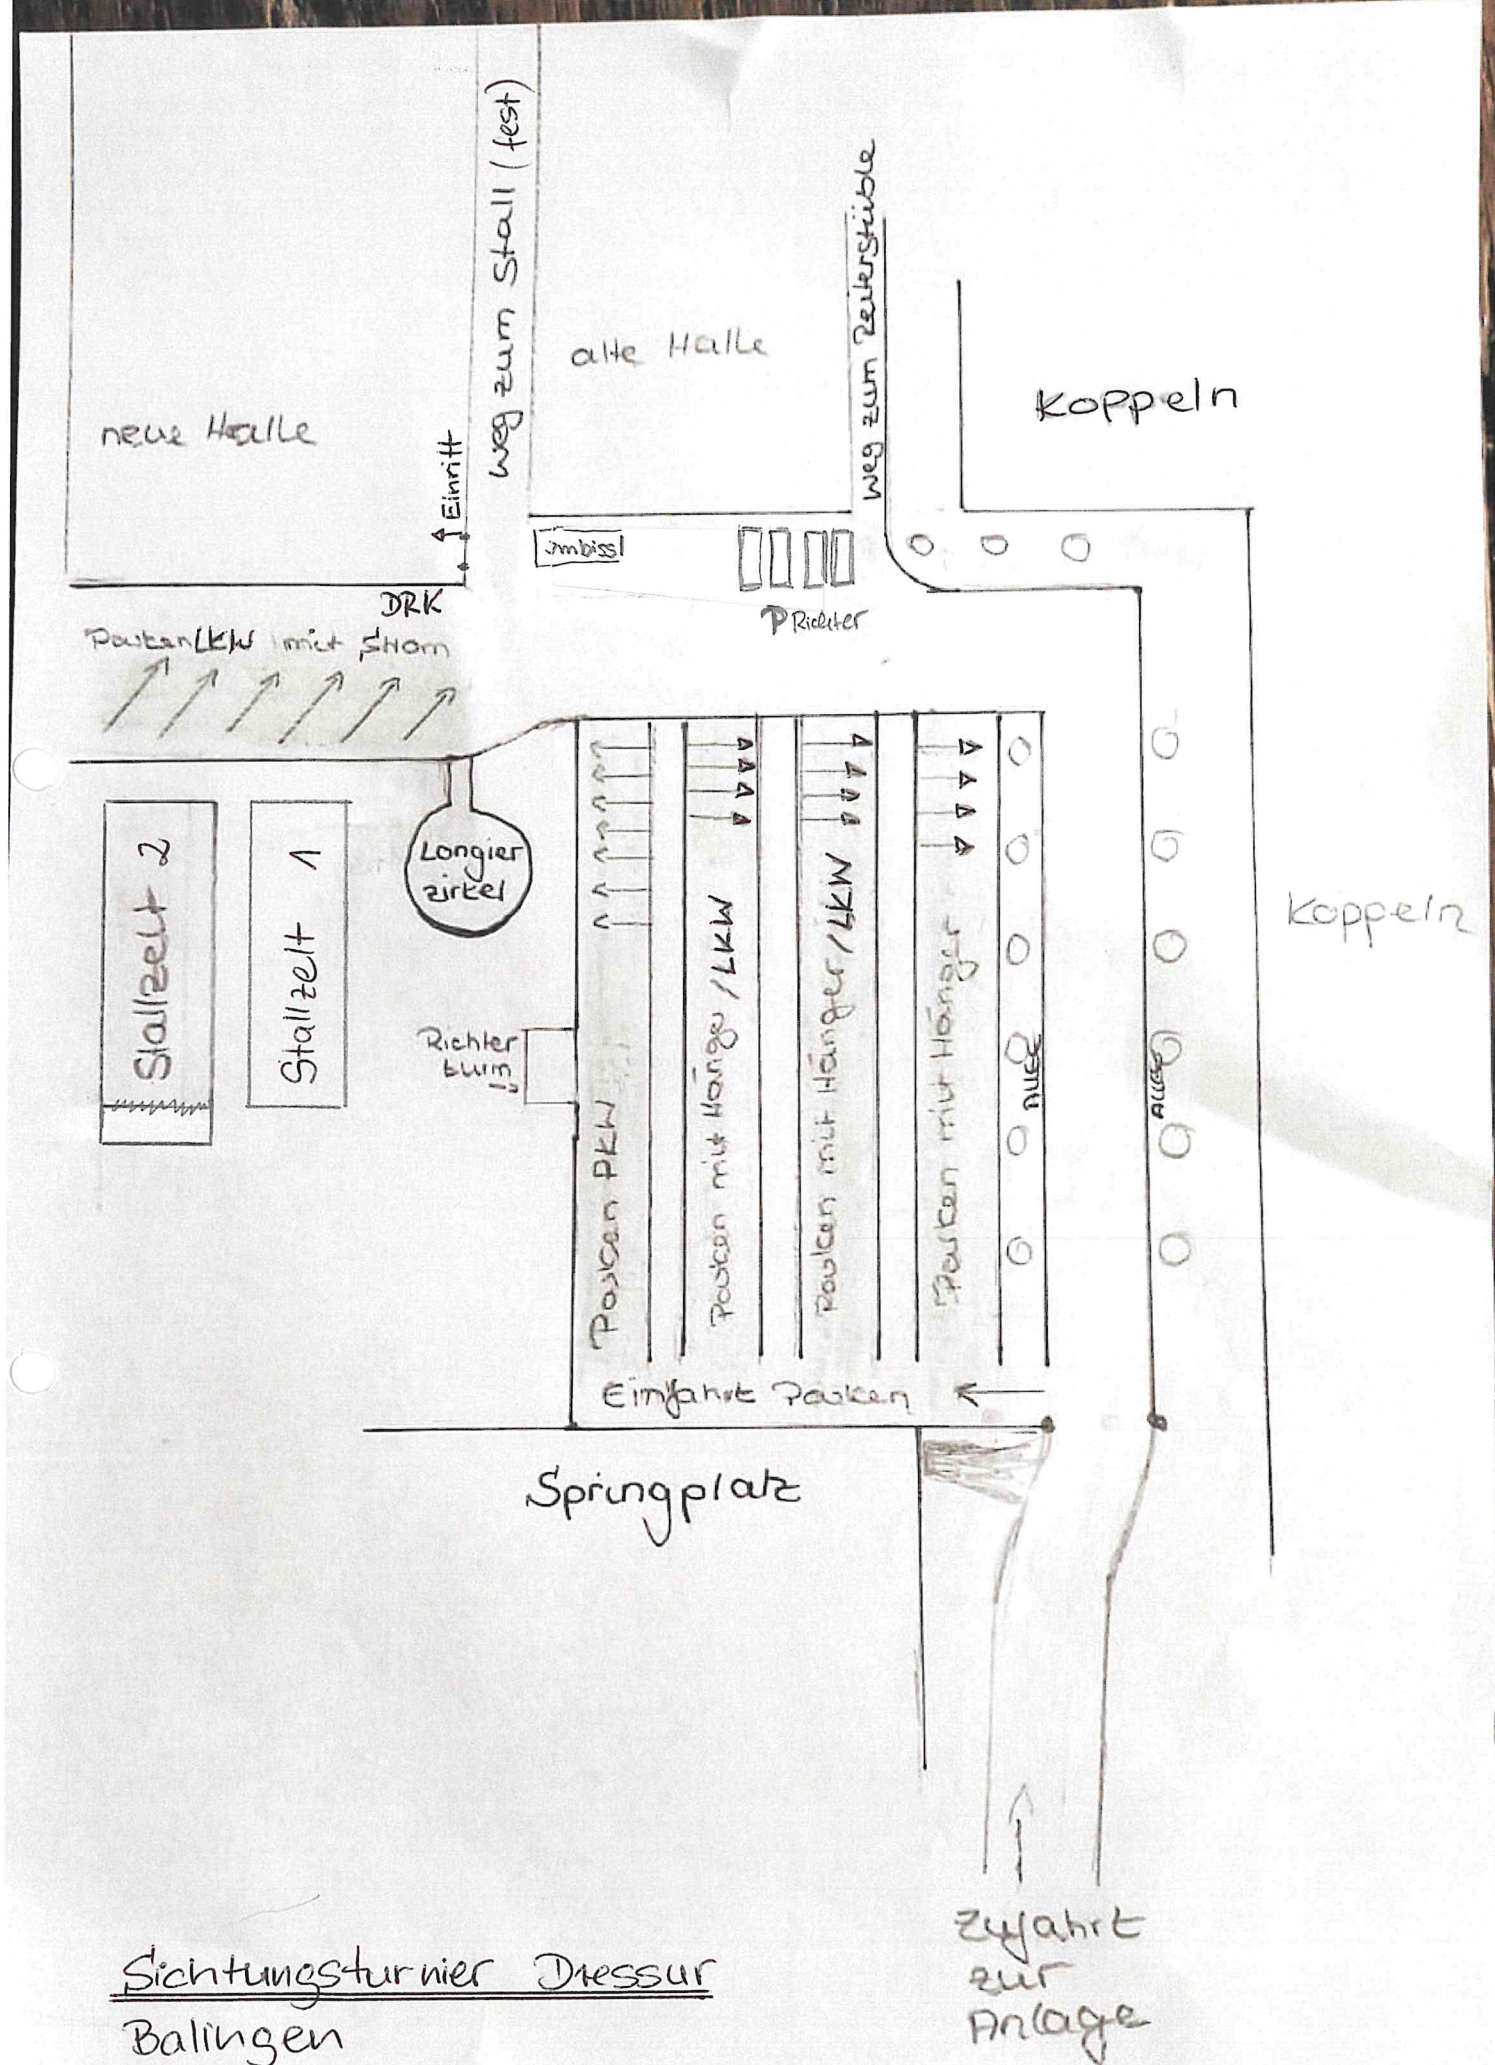 Weg zum Stall (fest)
Weg zum Reiterstüble
alte Halle
Koppeln
neue Halle
Einritt
Imbiss
DRK
P Richter
Parken LKW mit Strom
Stallzelt 2
Stallzelt 1
Longier
zirkel
Koppeln
Richter
turm
Parken PKW
Parken mit Hänger /LKW
Parken mit Hänger /LKW
Parken mit Hänger
ALLEE
ALLEE
Einfahrt Parken
Springplatz
Zufahrt
zur
Anlage
Sichtungsturnier Dressur
Balingen